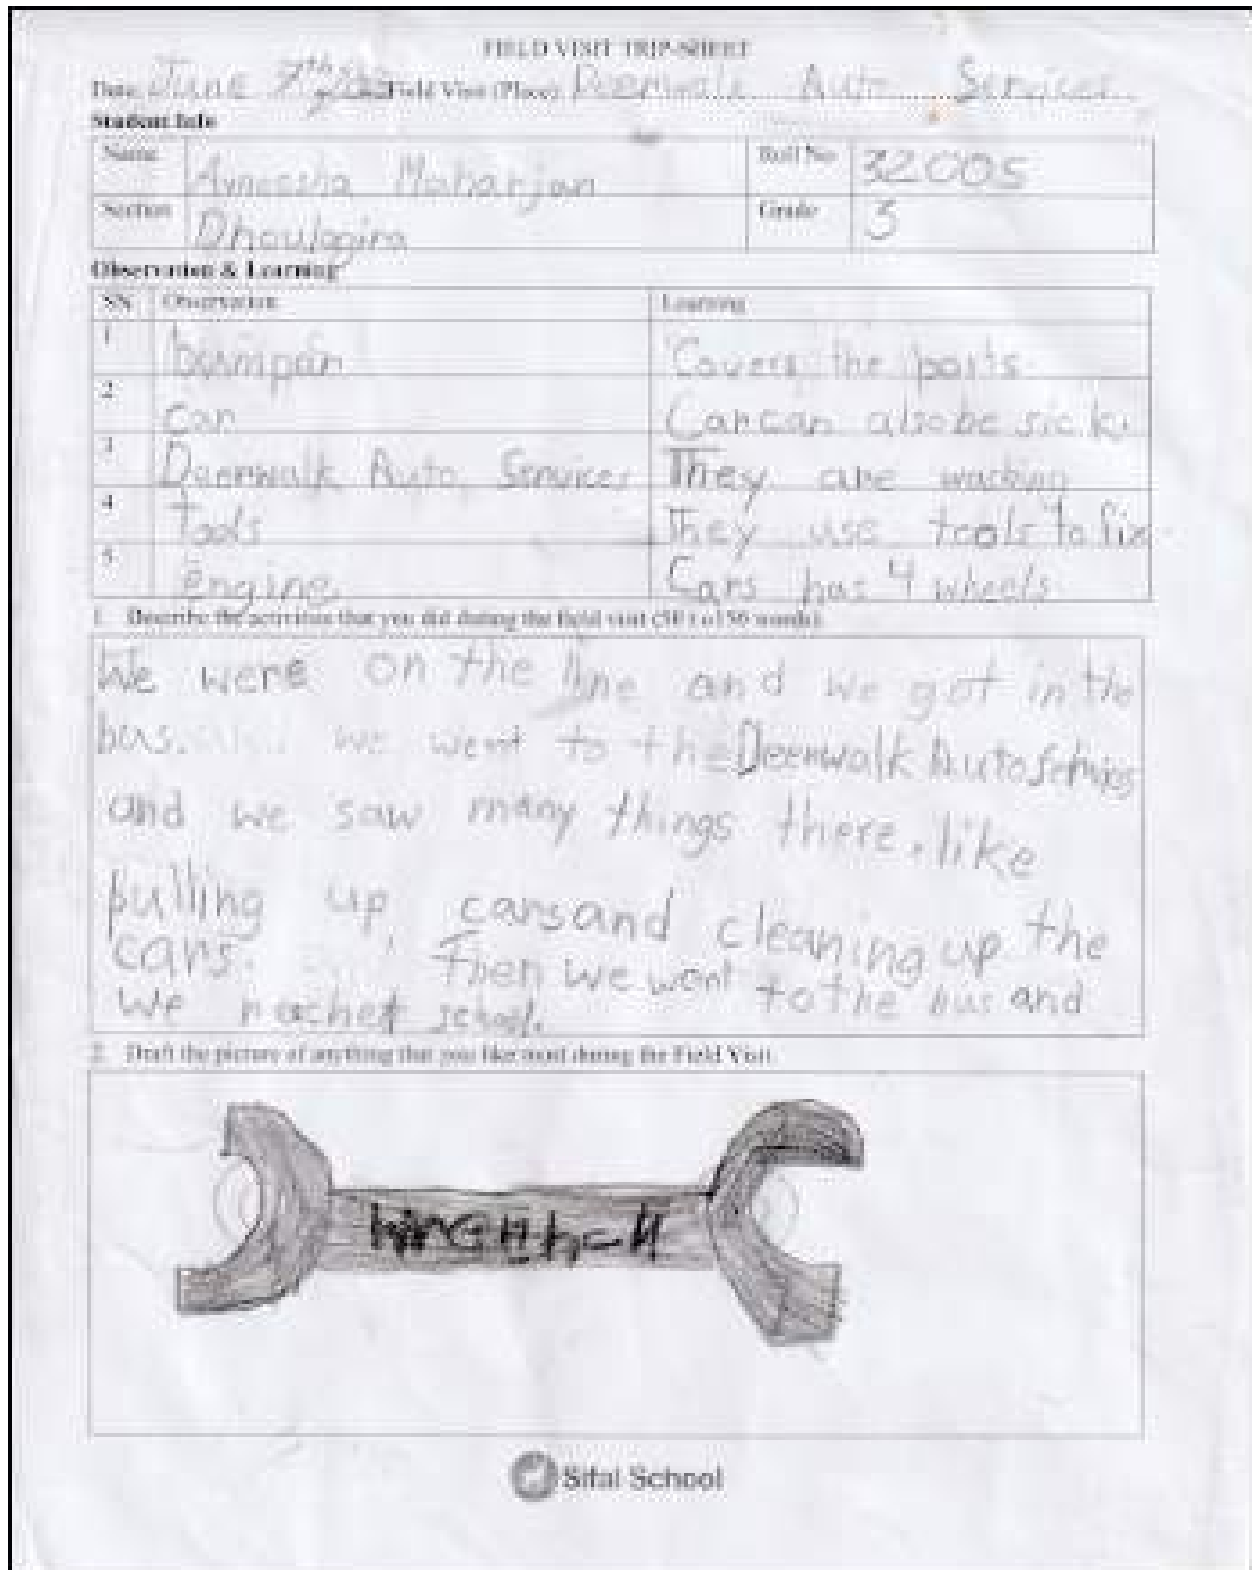 FIELD VISIT TRIP-SHEET
Date: June 7th Field Visit (Place) Deerwalk Auto Services
Student Info
Name Maharjan Roll No 32005
Section Grade 3
Observation & Learning
SN Observation Learning
1 bumpar Covers the parts.
2 car Car can also be sick.
3 Deerwalk Auto Services They are washing
4 tools They use tools to fix.
5 Engine Cars has 4 wheels.
1. Describe the activities that you did during the field visit (50 to 150 words).
We were on the line and we got in the
bus. we went to the Deerwalk Auto Services
and we saw many things there. like
pulling up cars and cleaning up the
cars. Then we went to the bus and
we rached school.
2. Draft the picture of anything that you like most during the Field Visit.
Sifal School